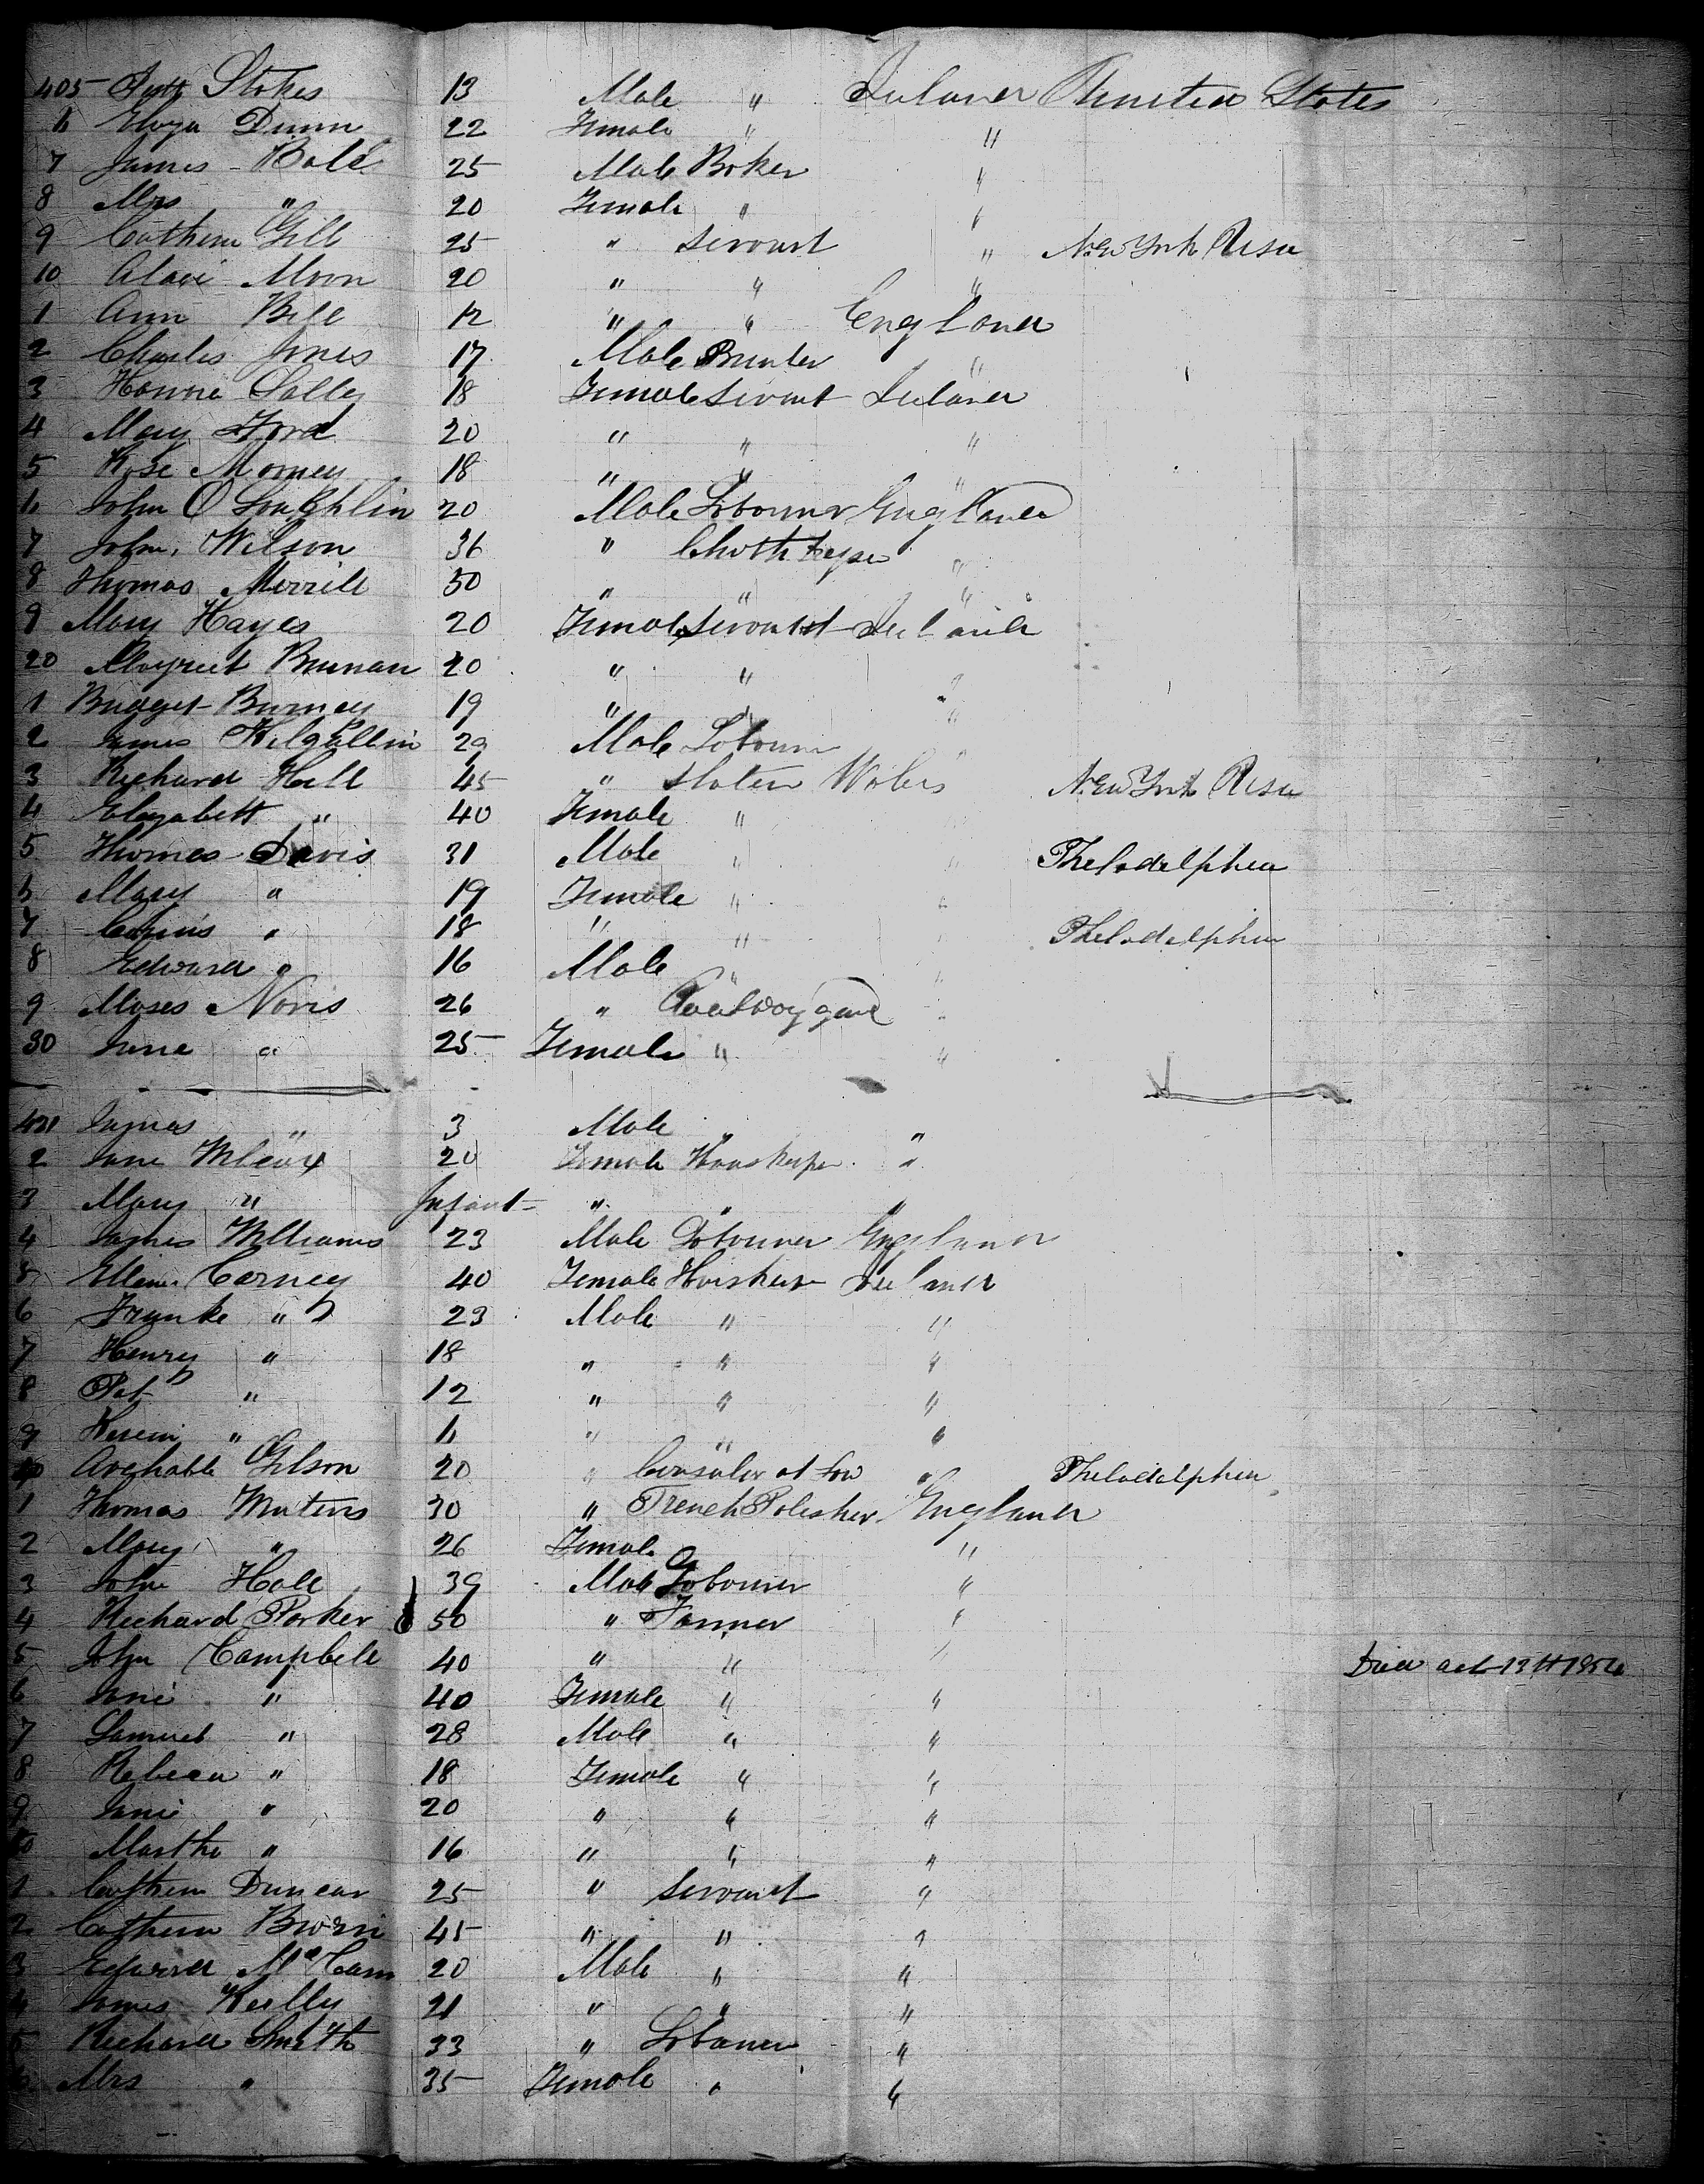 405 Stokes 13 Male " Irelaner United States
6 Eliza Dunn 22 Female " "
7 James Bale 25 Male Boker "
8 Mrs " 20 Female " "
9 Cathern Gill 25 " Servant " New York
10 Moon 20 " " "
1 Ann Bell 12 " " England
2 Charles Jones 17 Male "
3 18 Female Servant Ireland
4 Mary Ford 20 " " "
5 Rose 18 " " "
6 John O Loughlin 20 Male Labourer England
7 John Wilson 36 " "
8 Thomas Merrill 30 " " "
9 Mary Hayes 20 Female Servant Ireland
20 Margreet Brenan 20 " " "
1 Bridget Burney 19 " " "
2 James Kilgallin 29 Male Labourer "
3 Richard Hill 45 " Slater Wales New York
4 Elizabeth " 40 Female "
5 Thomas Davis 31 Male " " Pheladelphia
6 Mary " 19 Female " "
7 " 18 " " " Pheladelphia
8 Edward " 16 Male " "
9 Moses Noris 26 "
30 Jane " 25 Female " "
431 James " 3 Male "
2 Jane 20 Female Houskeeper "
3 Mary " Infant " "
4 James Williams 23 Male Labourer England
5 Ellen Carney 40 Female Ireland
6 Franke " 23 Male " "
7 Henry " 18 " " "
8 Pat " 12 " " "
9 " 6 " " "
40 Gilson 20 " " Pheladelphia
1 Thomas 30 " French Polesher England
2 Mary " 26 Female "
3 John Hall 39 Male Labourer "
4 Richard Parker 50 " Farmer "
5 John Campbell 40 " " " Died 1854
6 Jane " 40 Female " "
7 Samuel " 28 Male " "
8 Rebeca " 18 Female " "
9 Jane " 20 " " "
50 Martha " 16 " " "
1 Cathern Duncan 25 " Servant "
2 Cathern Brown 45 " " "
3 Edward 20 Male " "
4 James Kelly 21 " " "
5 Richard Smith 33 " Labourer "
6 Mrs " 35 Female " "